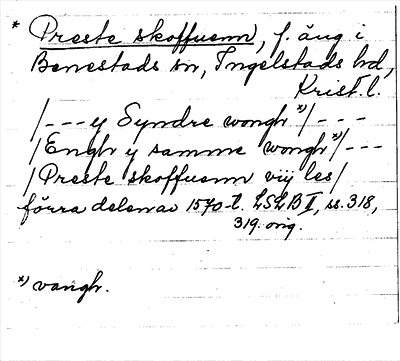 * Preste skoffuenn, f. äng i
Benestads sn, Ingelstads hd,
Krist. l.
/--- y Syndre wongh *)/ - - -
/Engh y samme wongh *)/---
/Preste skoffuenn viij les/
förra delen av 1570-t. LSLB II, ss. 318,
319. orig.
*) vangh.